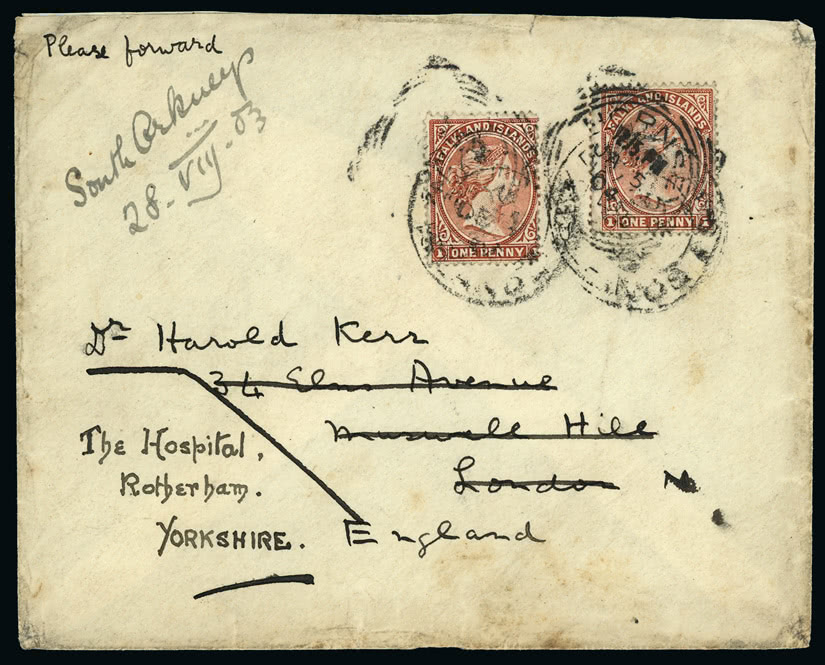 Please forward
South Orkneys
28.VIII.03
FALKLAND ISLANDS
1 ONE PENNY
FALKLAND ISLANDS
1 ONE PENNY 1
HORNSEY
Dr Harold Kerr
34 Elms Avenue
Muswell Hill
London N
England
The Hospital,
Rotherham.
YORKSHIRE.